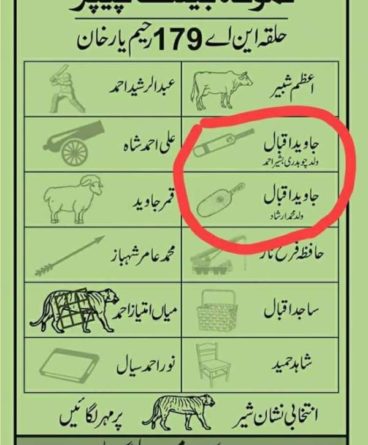 نمونہ بیلٹ پیپر
حلقہ این اے 179 رحیم یار خان
اعظم شبیر
عبدالرشید احمد
جاوید اقبال
ولد چوہدری بشیر احمد
علی احمد شاہ
جاوید اقبال
ولد محمد ارشاد
قمر جاوید
حافظہ فرح ناز
محمد عامر شہباز
ساجد اقبال
میاں امتیاز احمد
شاہد حمید
نور احمد سیال
انتخابی نشان شیر پر مہر لگائیں